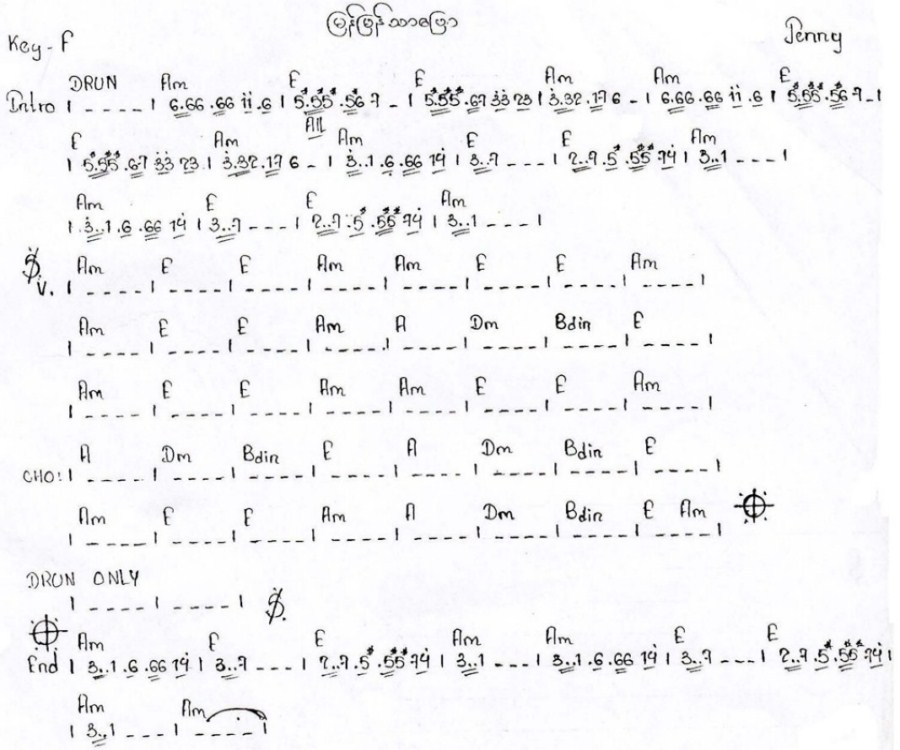 မြန်မြန်သာပြော
Key - F
Penny
DRUN Am E E Am Am E
Intro | - - - - | 6.66 .66 ii .6 | 5.55 .56 7 - | 5.55 .67 33 23 | 3.32 .17 6 - | 6.66 .66 ii .6 | 5.55 .56 7 - |
All
E Am Am E E Am
| 5.55 .67 33 23 | 3.32 .17 6 - | 3..1 .6 .66 14 | 3..7 - - - | 2..7 .5 .55 74 | 3..1 - - - |
Am E E Am
| 3..1 .6 .66 14 | 3..7 - - - | 2..7 .5 .55 74 | 3..1 - - - |
Am E E Am Am E E Am
V. | - - - - | - - - - | - - - - | - - - - | - - - - | - - - - | - - - - | - - - - |
Am E E Am A Dm Bdin E
| - - - - | - - - - | - - - - | - - - - | - - - - | - - - - | - - - - | - - - - |
Am E E Am Am E E Am
| - - - - | - - - - | - - - - | - - - - | - - - - | - - - - | - - - - | - - - - |
A Dm Bdin E A Dm Bdin E
CHO: | - - - - | - - - - | - - - - | - - - - | - - - - | - - - - | - - - - | - - - - |
Am E E Am A Dm Bdin E Am
| - - - - | - - - - | - - - - | - - - - | - - - - | - - - - | - - - - | - - - - |
DRUN ONLY
| - - - - | - - - - |
Am E E Am Am E E
End | 3..1 .6 .66 14 | 3..7 - - - | 2..7 .5 .55 74 | 3..1 - - - | 3..1 .6 .66 14 | 3..7 - - - | 2..7 .5 .55 74 |
Am Am
| 3..1 - - - | - - - - |